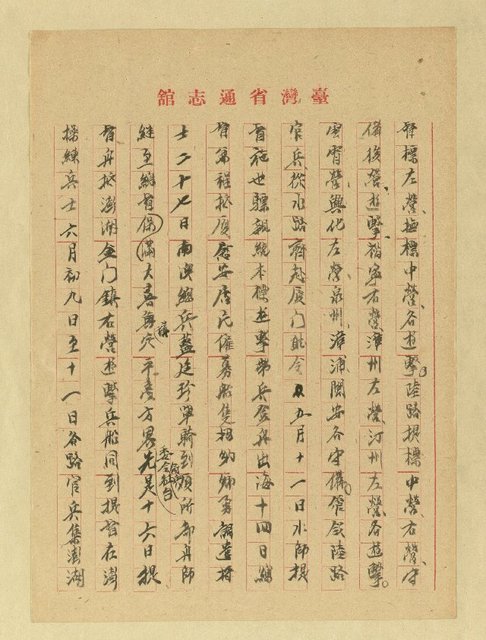 臺灣省通志館
督標左營、撫標中營、各遊擊。陸路提標中營、右營、守
備後營、遊擊。福寧右營、漳州左營、汀州左營、各遊擊。
雲霄營、興化左營、泉州、漳浦、閩安各守備。管領陸路
官兵從水路齊赴廈門聽令。五月十一日水師提
督施世驃親統本標遊擊弟兵登舟出海十四日總
督兼程抵廈慰安居民催募船隻招幼鄉勇
士二十七日南澳總兵藍廷珍單騎到順所部舟師
繼至總督保滿大喜平臺方畧先是十六日提
委令符台
督舟抵澎湖金門鎮右營遊擊兵船同到提督在澎
操練兵士六月初九日至十一日各路官兵集澎湖